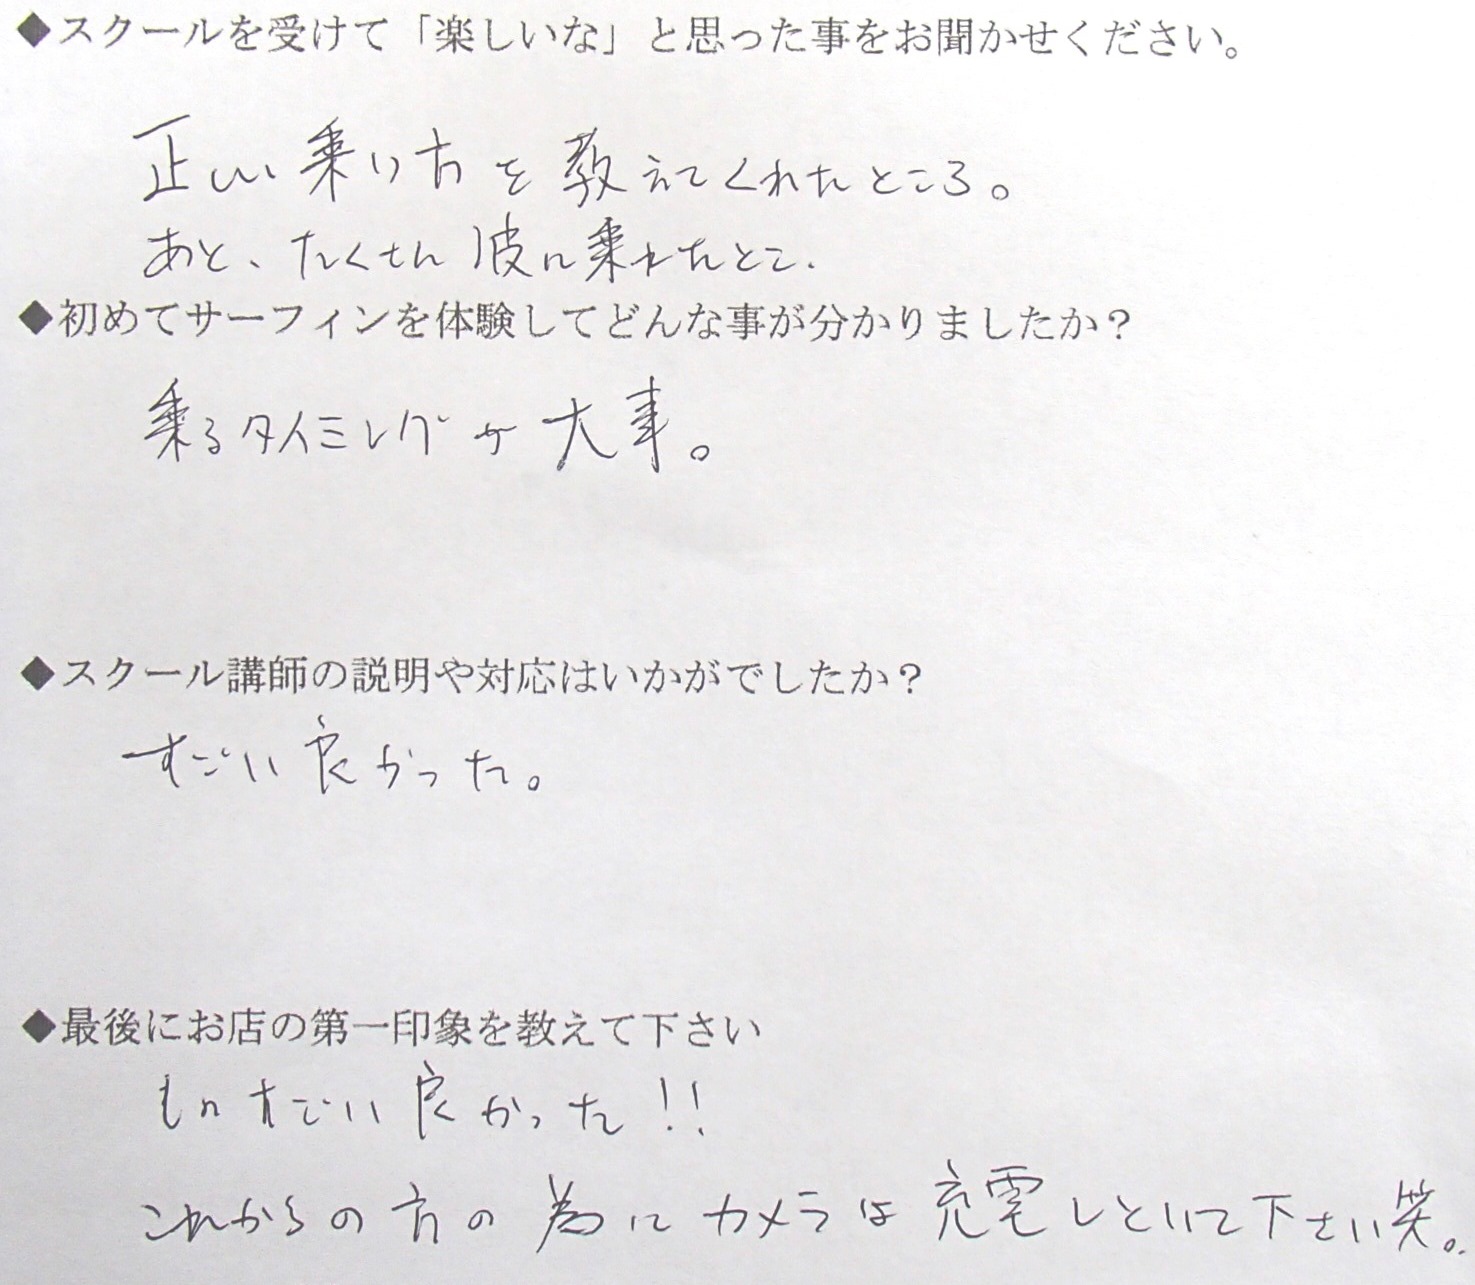 ◆スクールを受けて「楽しいな」と思った事をお聞かせください。
正しい乗り方を教えてくれたところ。
あと、たくさん波に乗れたとこ.
◆初めてサーフィンを体験してどんな事が分かりましたか？
乗るタイミングが大事。
◆スクール講師の説明や対応はいかがでしたか？
すごい良かった。
◆最後にお店の第一印象を教えて下さい
ものすごい良かった!!
これからの方の為にカメラは充電しといて下さい笑。